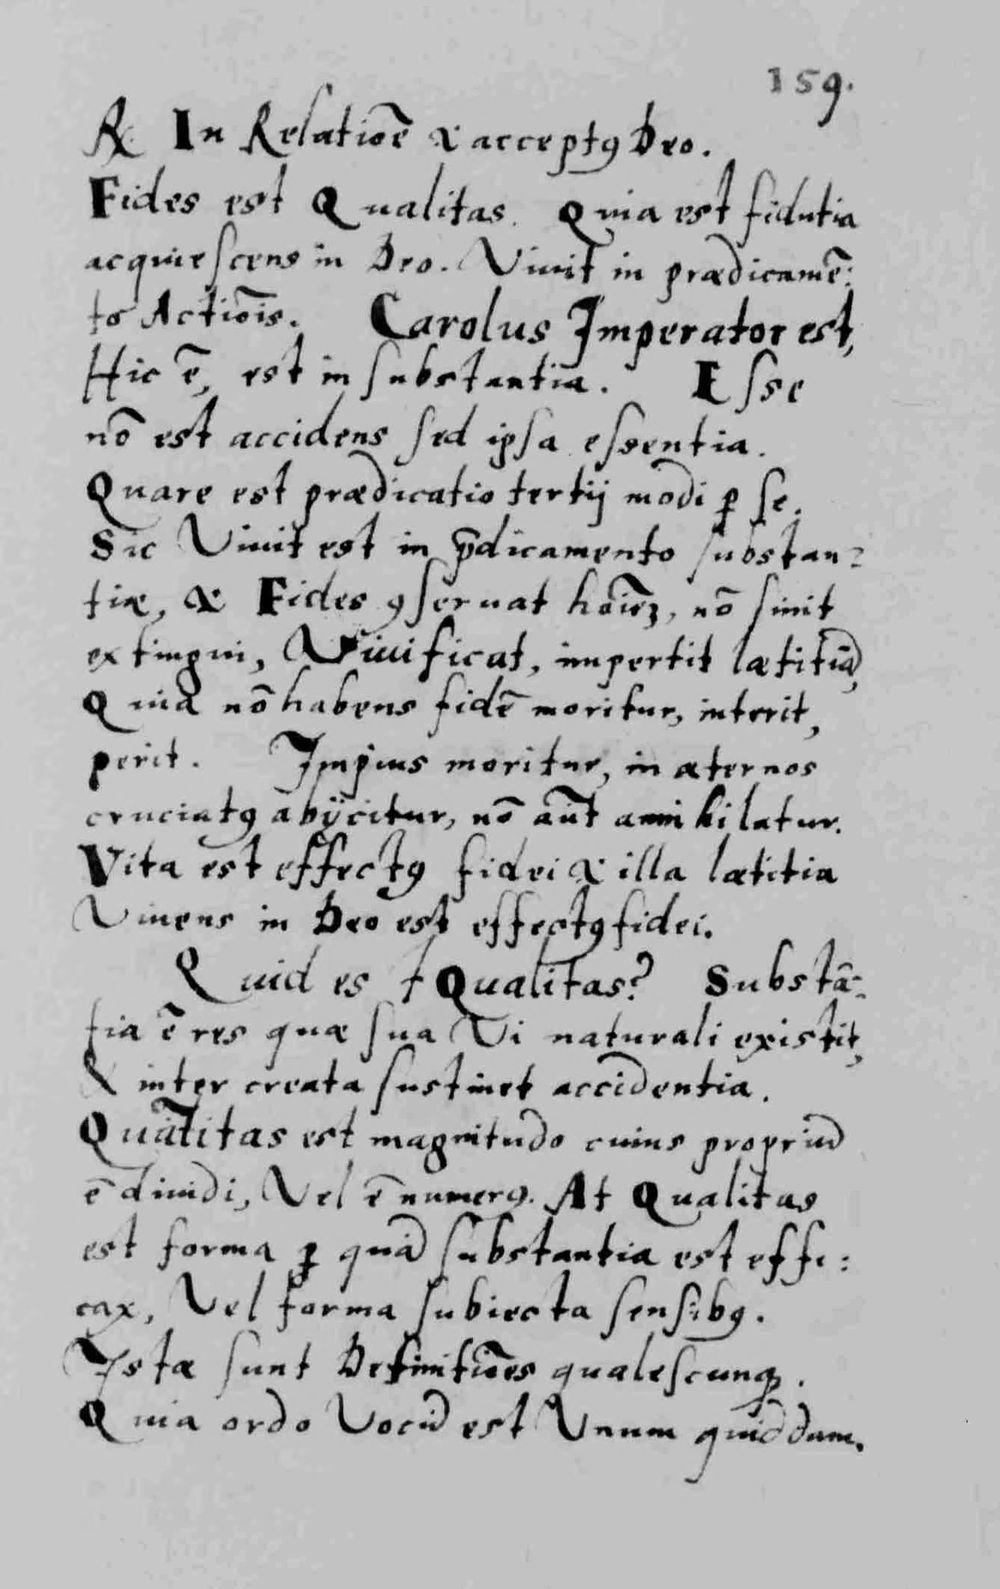 159.
℞ In Relatiōē & acceptꝰ Deo.
Fides est Qualitas. Quia est fidutia
acquiescens in Deo. Viuit in prædicamē:
to Actiōis. Carolus Imperator est,
Hic ē, est in substantia. Esse
nō est accidens sed ipsa essentia.
Quare est prædicatio tertij modi ꝑ se.
Sic Viuit est in p̄dicamento substan:
tiæ, & Fides ꝯseruat hoīeꝫ, nō sinit
extingui, Viuificat, impertit lætitiā,
Quia nō habens fidē moritur, interit,
perit. Impius moritur, in æternos
cruciatꝰ abijcitur, nō aūt annihilatur.
Vita est effectꝰ fidei & illa lætitia
Viuens in Deo est effectꝰ fidei.
Quid est Qualitas? Substā:
tia ē res quæ sua Vi naturali existit,
& inter creata sustinet accidentia.
Quātitas est magnitudo cuius propriū
ē diuidi, Vel ē numerꝰ. At Qualitas
est forma ꝑ quā substantia est effi:
cax, Vel forma subiecta sensibꝰ.
Istæ sunt Definitiōes qualescunqꝫ.
Quia ordo Vocū est Vnum quiddam.